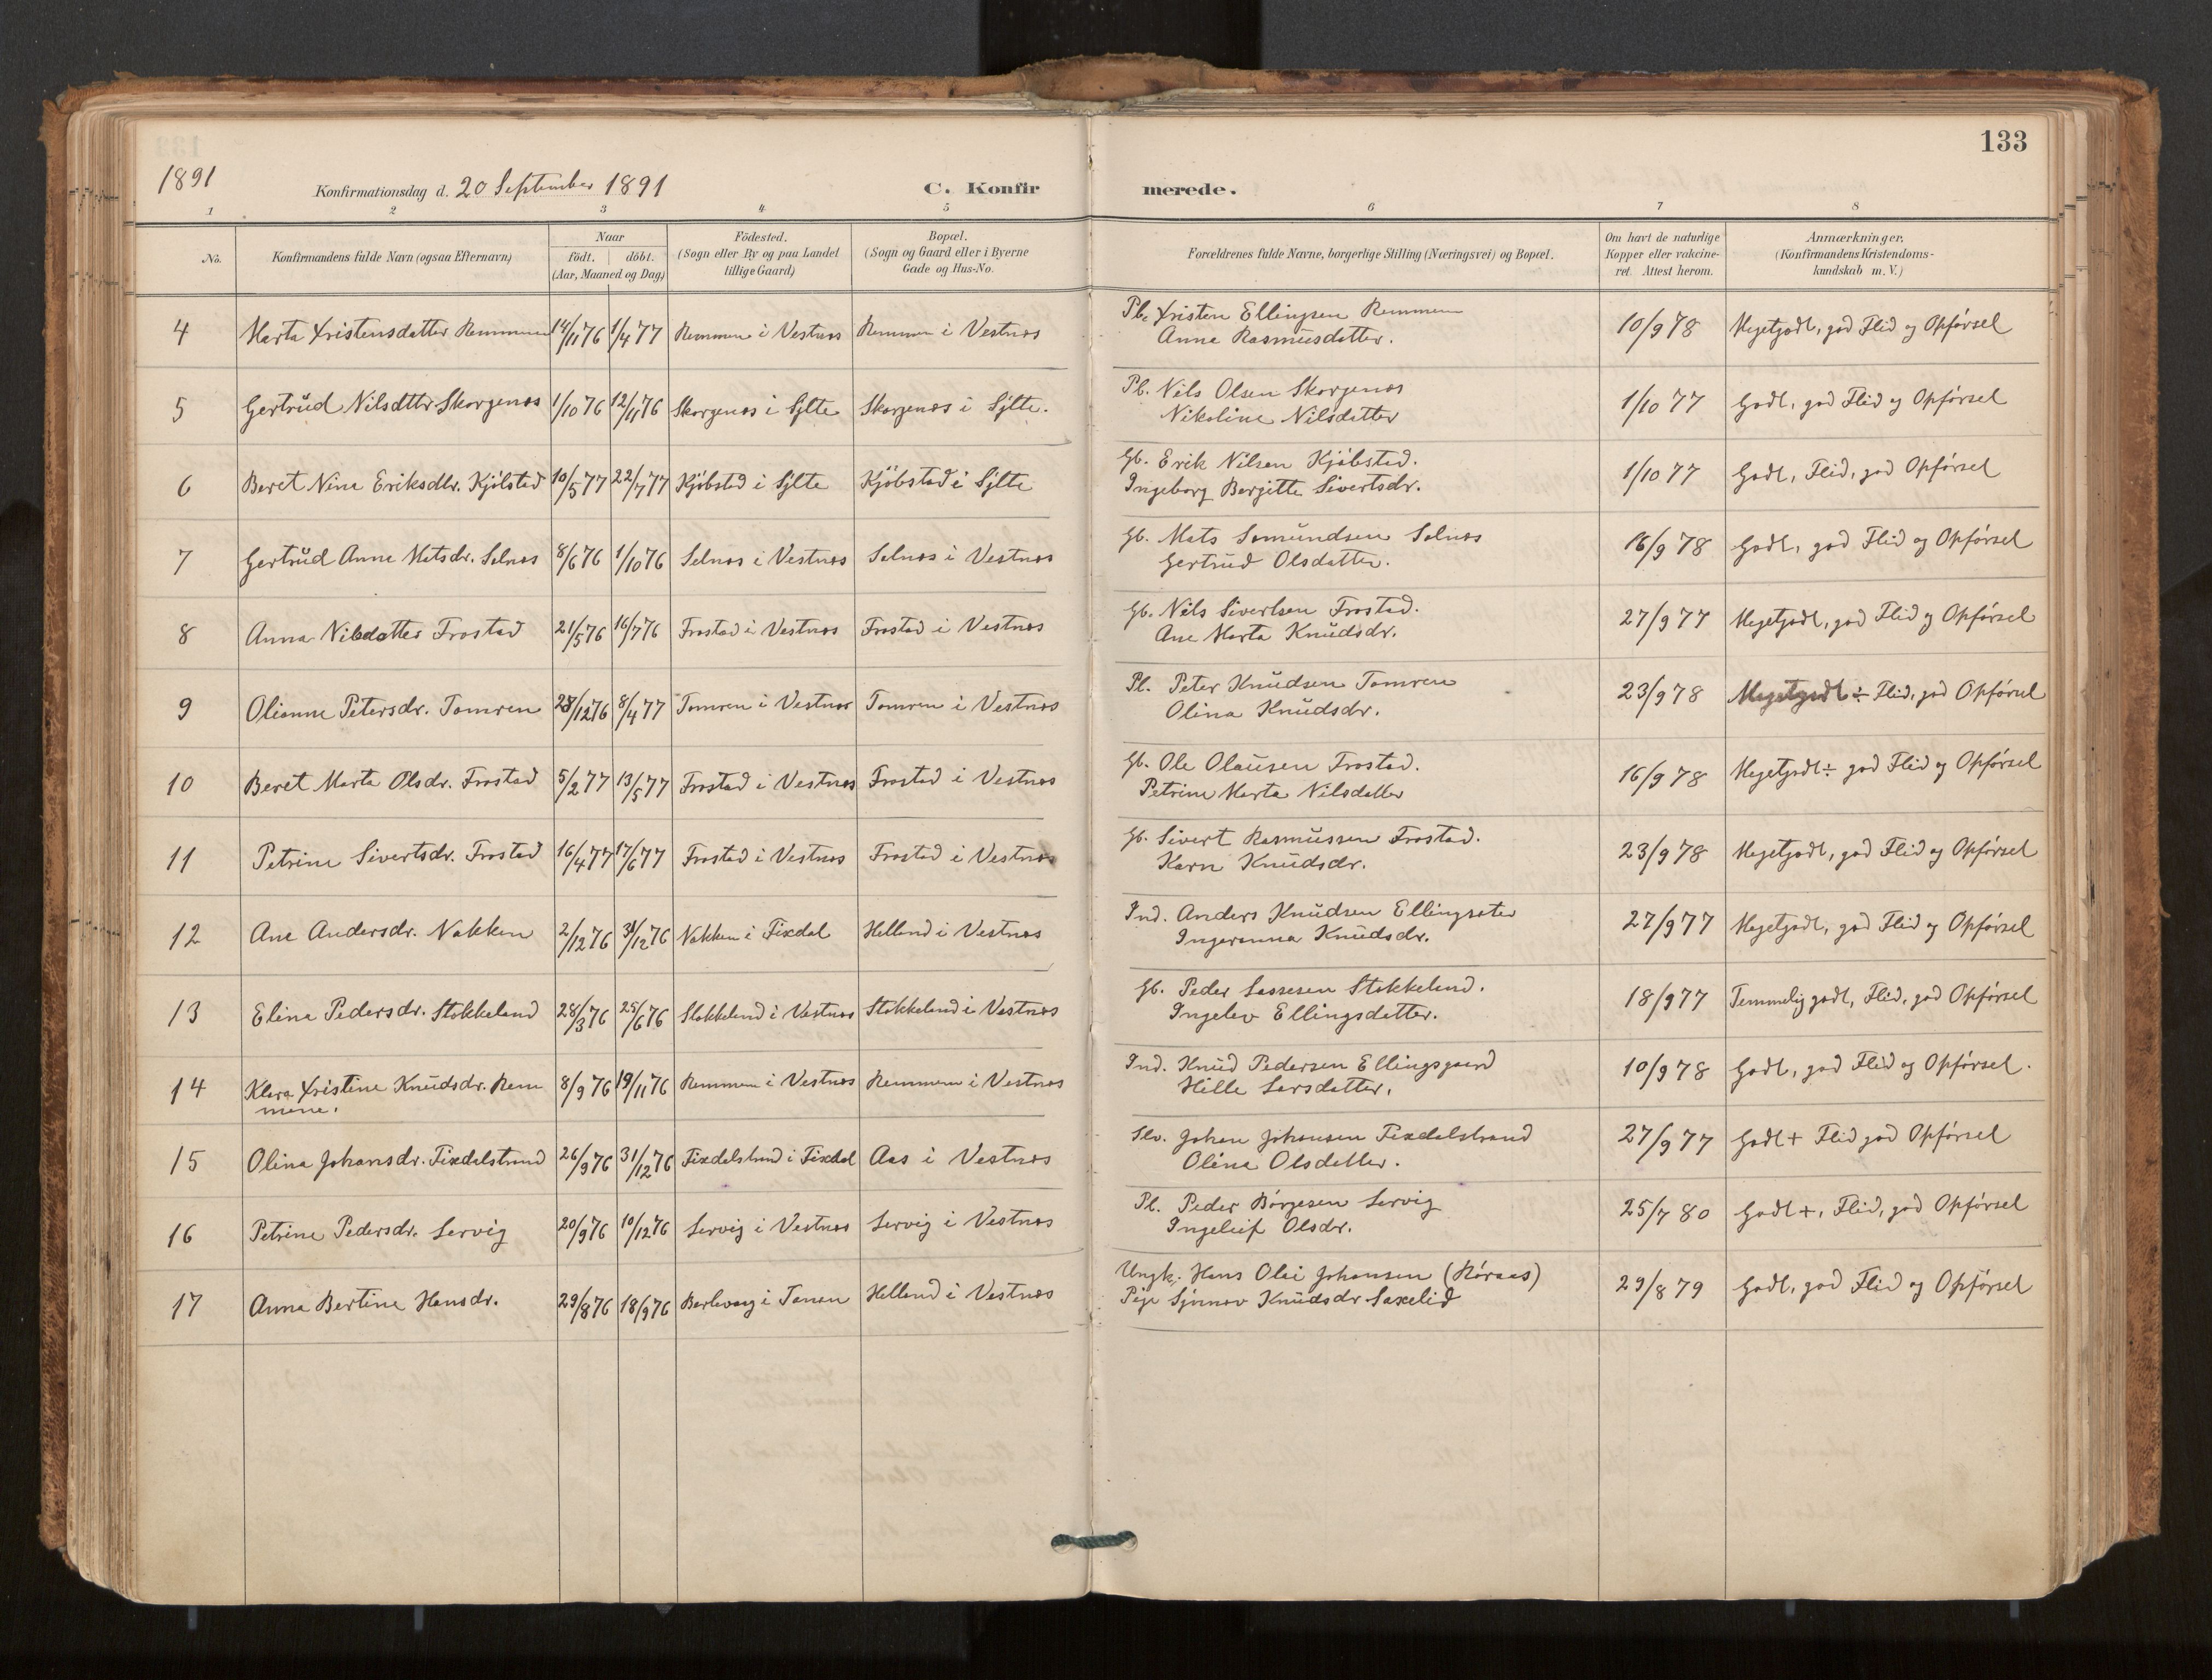 133
1891
Konfirmationsdag d. 20 September 1891
C. Konfirmerede.
1 2 3 4 5 6 7 8
No. Konfirmandens fulde Navn (ogsaa Efternavn) Naar födt. döbt. (Aar, Maaned og Dag) Födested. (Sogn eller By og paa Landet tillige Gaard) Bopæl. (Sogn og Gaard eller i Byerne Gade og Hus-No. Forældrenes fulde Navne, borgerlige Stilling (Næringsvei) og Bopæl. Om havt de naturlige Kopper eller vakcineret. Attest herom. Anmærkninger. (Konfirmandens Kristendomskundskab m. V.)
4 Marta Xristensdatter Remmem 14/11 76 1/4 77 Remmem i Vestnæs Remmem i Vestnæs Pl. Xristen Ellingsen Remmem 10/9 78 Megetgodt, god Flid og Opförsel
Anne Rasmusdatter.
5 Gertrud Nilsdttr Skorgenæs 1/10 76 12/11 76 Skorgenæs i Sylte Skorgenæs i Sylte. Pl. Nils Olsen Skorgenæs 1/10 77 Godt, god Flid og Opförsel
Nikoline Nilsdatter
6 Beret Nina Eriksdtr. Kjölstad 10/5 77 22/7 77 Kjöbstad i Sylte Kjöbstad i Sylte Gb. Erik Nilsen Kjöbstad. 1/10 77 Godt, Flid, god Opförsel
Ingeborg Bergitte Sivertsdr.
7 Gertrud Anne Matsdr. Selnæs 8/6 76 1/10 76 Selnæs i Vestnæs Selnæs i Vestnæs Gb. Mats Samundsen Selnæs 16/9 78 Godt, god Flid og Opförsel
Gertrud Olsdatter.
8 Anna Nilsdatter Frostad 21/5 76 16/7 76 Frostad i Vestnæs Frostad i Vestnæs Gb. Nils Sivertsen Frostad. 27/9 77 Megetgodt, god Flid og Opförsel
Ane Marta Knudsdr.
9 Olianne Petersdr. Tomren 28/12 76 8/4 77 Tomren i Vestnæs Tomren i Vestnæs Pl. Peter Knudsen Tomren 23/9 78 Megetgodt ÷ Flid, god Opförsel
Olina Knudsdr.
10 Beret Marta Olsdr. Frostad 5/2 77 13/5 77 Frostad i Vestnæs Frostad i Vestnæs Gb. Ole Olausen Frostad. 16/9 78 Megetgodt ÷ god Flid og Opförsel
Petrine Marta Nilsdatter
11 Petrine Sivertsdr. Frostad 16/4 77 17/6 77 Frostad i Vestnæs Frostad i Vestnæs Gb. Sivert Rasmussen Frostad. 23/9 78 Megetgodt, god Flid og Opförsel
Karn Knudsdr.
12 Ane Andersdr. Nakken 2/12 76 31/12 76 Nakken i Fixdal Helland i Vestnæs Ind. Anders Knudsen Ellingsæter 27/9 77 Megetgodt, god Flid og Opförsel
Ingeranna Knudsdr.
13 Elina Pedersdr. Stokkeland 28/3 76 25/6 76 Stokkeland i Vestnæs Stokkeland i Vestnæs Gb. Peder Lassesen Stokkeland. 18/9 77 Temmelig godt, Flid, god Opförsel
Ingelev Ellingsdatter.
14 Klara Xristine Knudsdr. Rem 8/9 76 19/11 76 Remmem i Vestnæs Remmem i Vestnæs Ind. Knud Pedersen Ellingsgaard 10/9 78 Godt, god Flid og Opförsel.
Hille Larsdatter.
15 Olina Johansdr. Fixdalstrand 26/9 76 31/12 76 Fixdalstrand i Fixdal Aas i Vestnæs Slv. Johan Johansen Fixdalstrand 27/9 77 Godt + Flid god Opförsel
Olina Olsdatter.
16 Petrine Pedersdr. Lervig 20/9 76 10/12 76 Lervig i Vestnæs Lervig i Vestnæs Pl. Peder Börgesen Lervig 25/7 80 Godt +, Flid, god Opförsel
Ingeleif Olsdr.
17 Anna Bertine Hansdr. 29/8 76 18/9 76 i Tanen Helland i Vestnæs Ungk. Hans Olai Johansen (Röraas) 29/8 79 Godt, god Flid og Opförsel
Pige Synnøv Knudsdr Saxelid